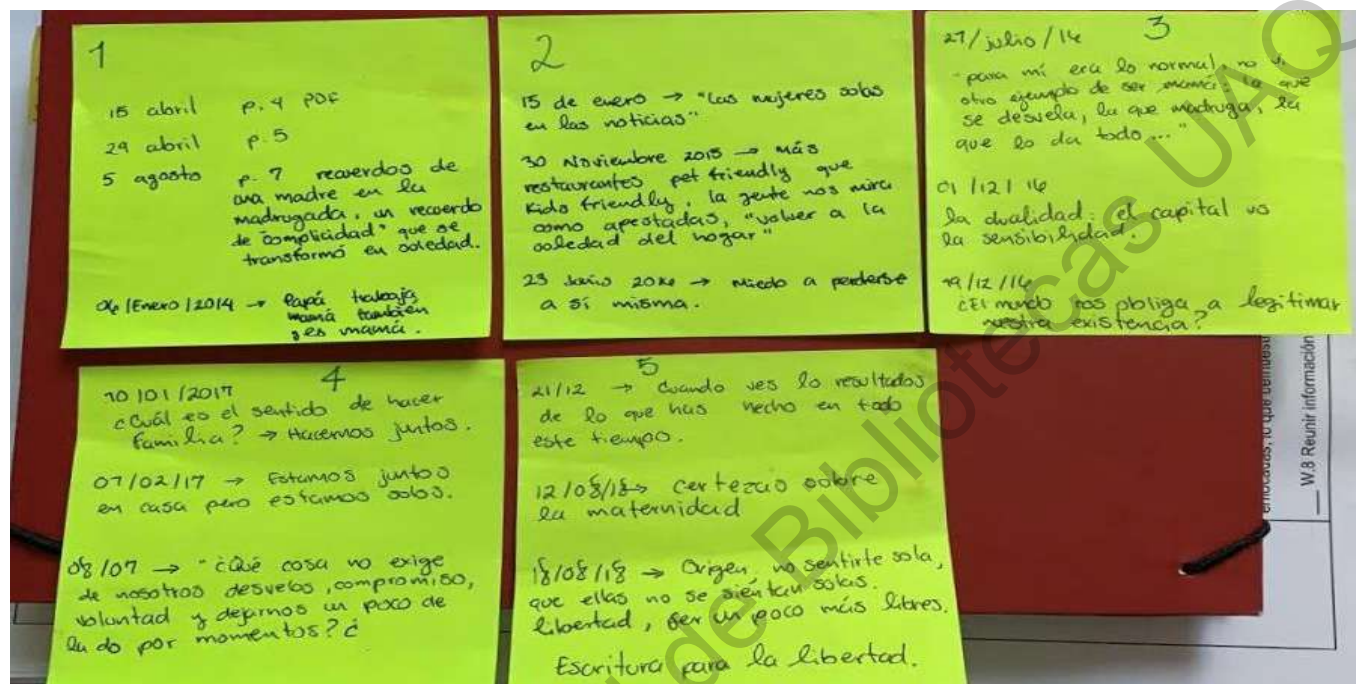 1
15 abril p. 4 PDF
29 abril p. 5
5 agosto p. 7 recuerdos de
una madre en la
madrugada, un recuerdo
de "complicidad" que se
transformó en soledad.
06/Enero/2014 → Papá trabaja,
mamá también
y es mamá.
2
15 de enero → "Las mujeres solas
en las noticias"
30 Noviembre 2015 → más
restaurantes pet friendly que
Kids friendly, la gente nos mira
como apestadas, "volver a la
soledad del hogar"
23 Junio → Miedo a perderse
a sí misma.
3
27/julio/16
"para mí era lo normal, no vi
otro ejemplo de ser mamá: la que
se desvela, la que madruga, la
que lo da todo..."
01/12/16
la dualidad: el capital vs
la sensibilidad.
19/12/16
¿El mundo nos obliga a legitimar
nuestra existencia?
4
10/01/2017
¿Cuál es el sentido de hacer
familia? → Hacernos juntos.
07/02/17 → Estamos juntos
en casa pero estamos solos.
08/07 → "¿Qué cosa no exige
de nosotros desvelos, compromiso,
voluntad y dejarnos un poco de
lado por momentos?¿
5
21/12 → Cuando ves lo resultados
de lo que has hecho en todo
este tiempo.
12/08/18 → certezas sobre
la maternidad
18/08/18 → Origen, no sentirte sola,
que ellas no se sientan solas.
libertad, ser un poco más libres.
Escritura para la libertad.
W.8 Reunir información
de Bibliotecas UAQ